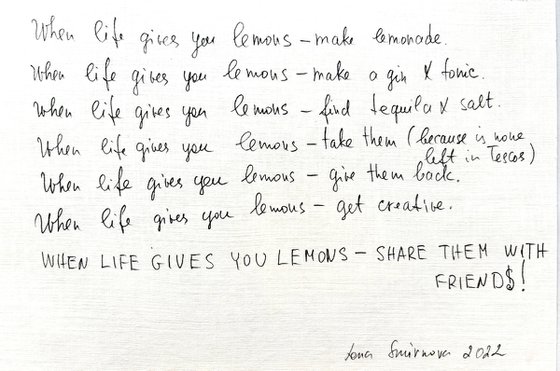 When life gives you lemons – make lemonade.
When life gives you lemons – make a gin & tonic.
When life gives you lemons – find tequila & salt.
When life gives you lemons – take them (because is none
left in Tescos)
When life gives you lemons – give them back.
When life gives you lemons – get creative.
WHEN LIFE GIVES YOU LEMONS – SHARE THEM WITH
FRIENDS!
Smirnova 2022